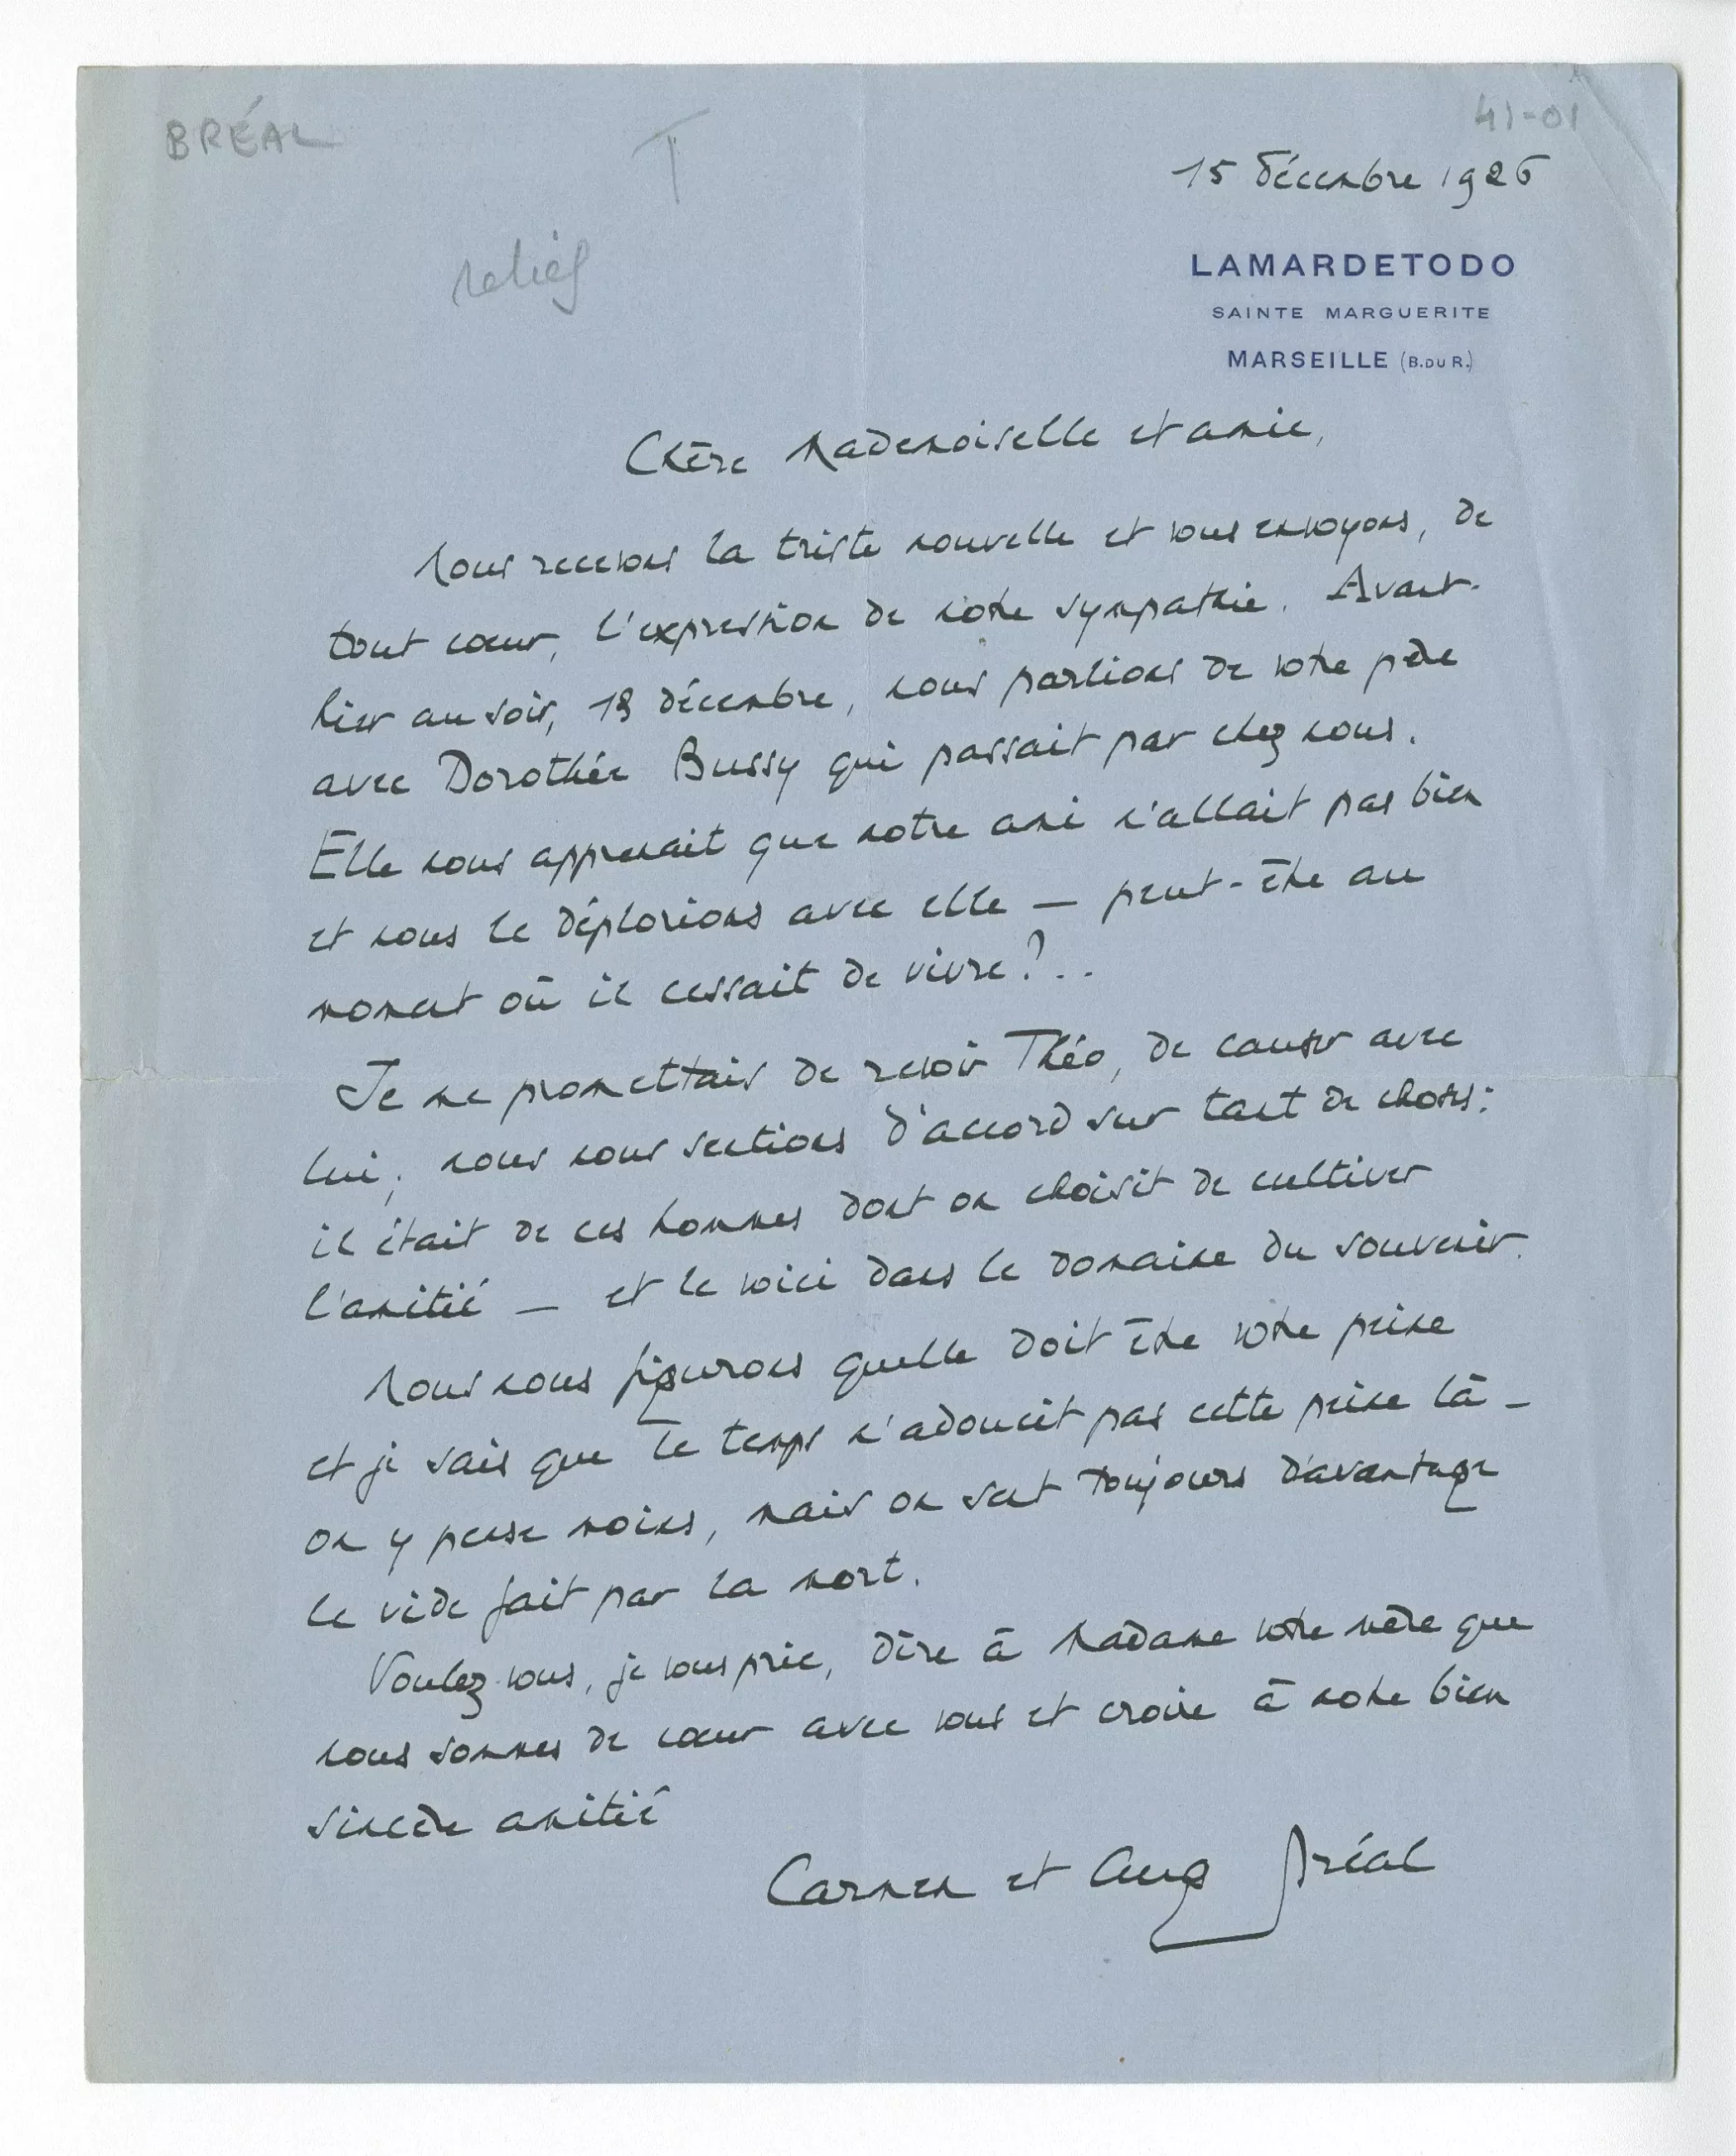 BRÉAL
T
41-01
relief
15 décembre 1926
LAMARDETODO
SAINTE MARGUERITE
MARSEILLE (B.DU R.)
Chère Mademoiselle et amie,
Nous recevons la triste nouvelle et vous envoyons, de
tout cœur, l'expression de notre sympathie. Avant-
hier au soir, 13 décembre, nous parlions de votre père
avec Dorothée Bussy qui passait par chez nous.
Elle nous apprenait que notre ami n'allait pas bien
et nous le déplorions avec elle — peut-être au
moment où il cessait de vivre?..
Je me promettais de revoir Théo, de causer avec
lui; nous nous sentions d'accord sur tant de choses:
il était de ces hommes dont on choisit de cultiver
l'amitié — et le voici dans le domaine du souvenir.
Nous nous figurons quelle doit être votre peine
et je sais que le temps n'adoucit pas cette peine là —
on y pense moins, mais on sent toujours d'avantage
le vide fait par la mort.
Voulez-vous, je vous prie, dire à Madame votre mère que
nous sommes de cœur avec vous et croire à notre bien
sincère amitié
Carmen et Aug Bréal